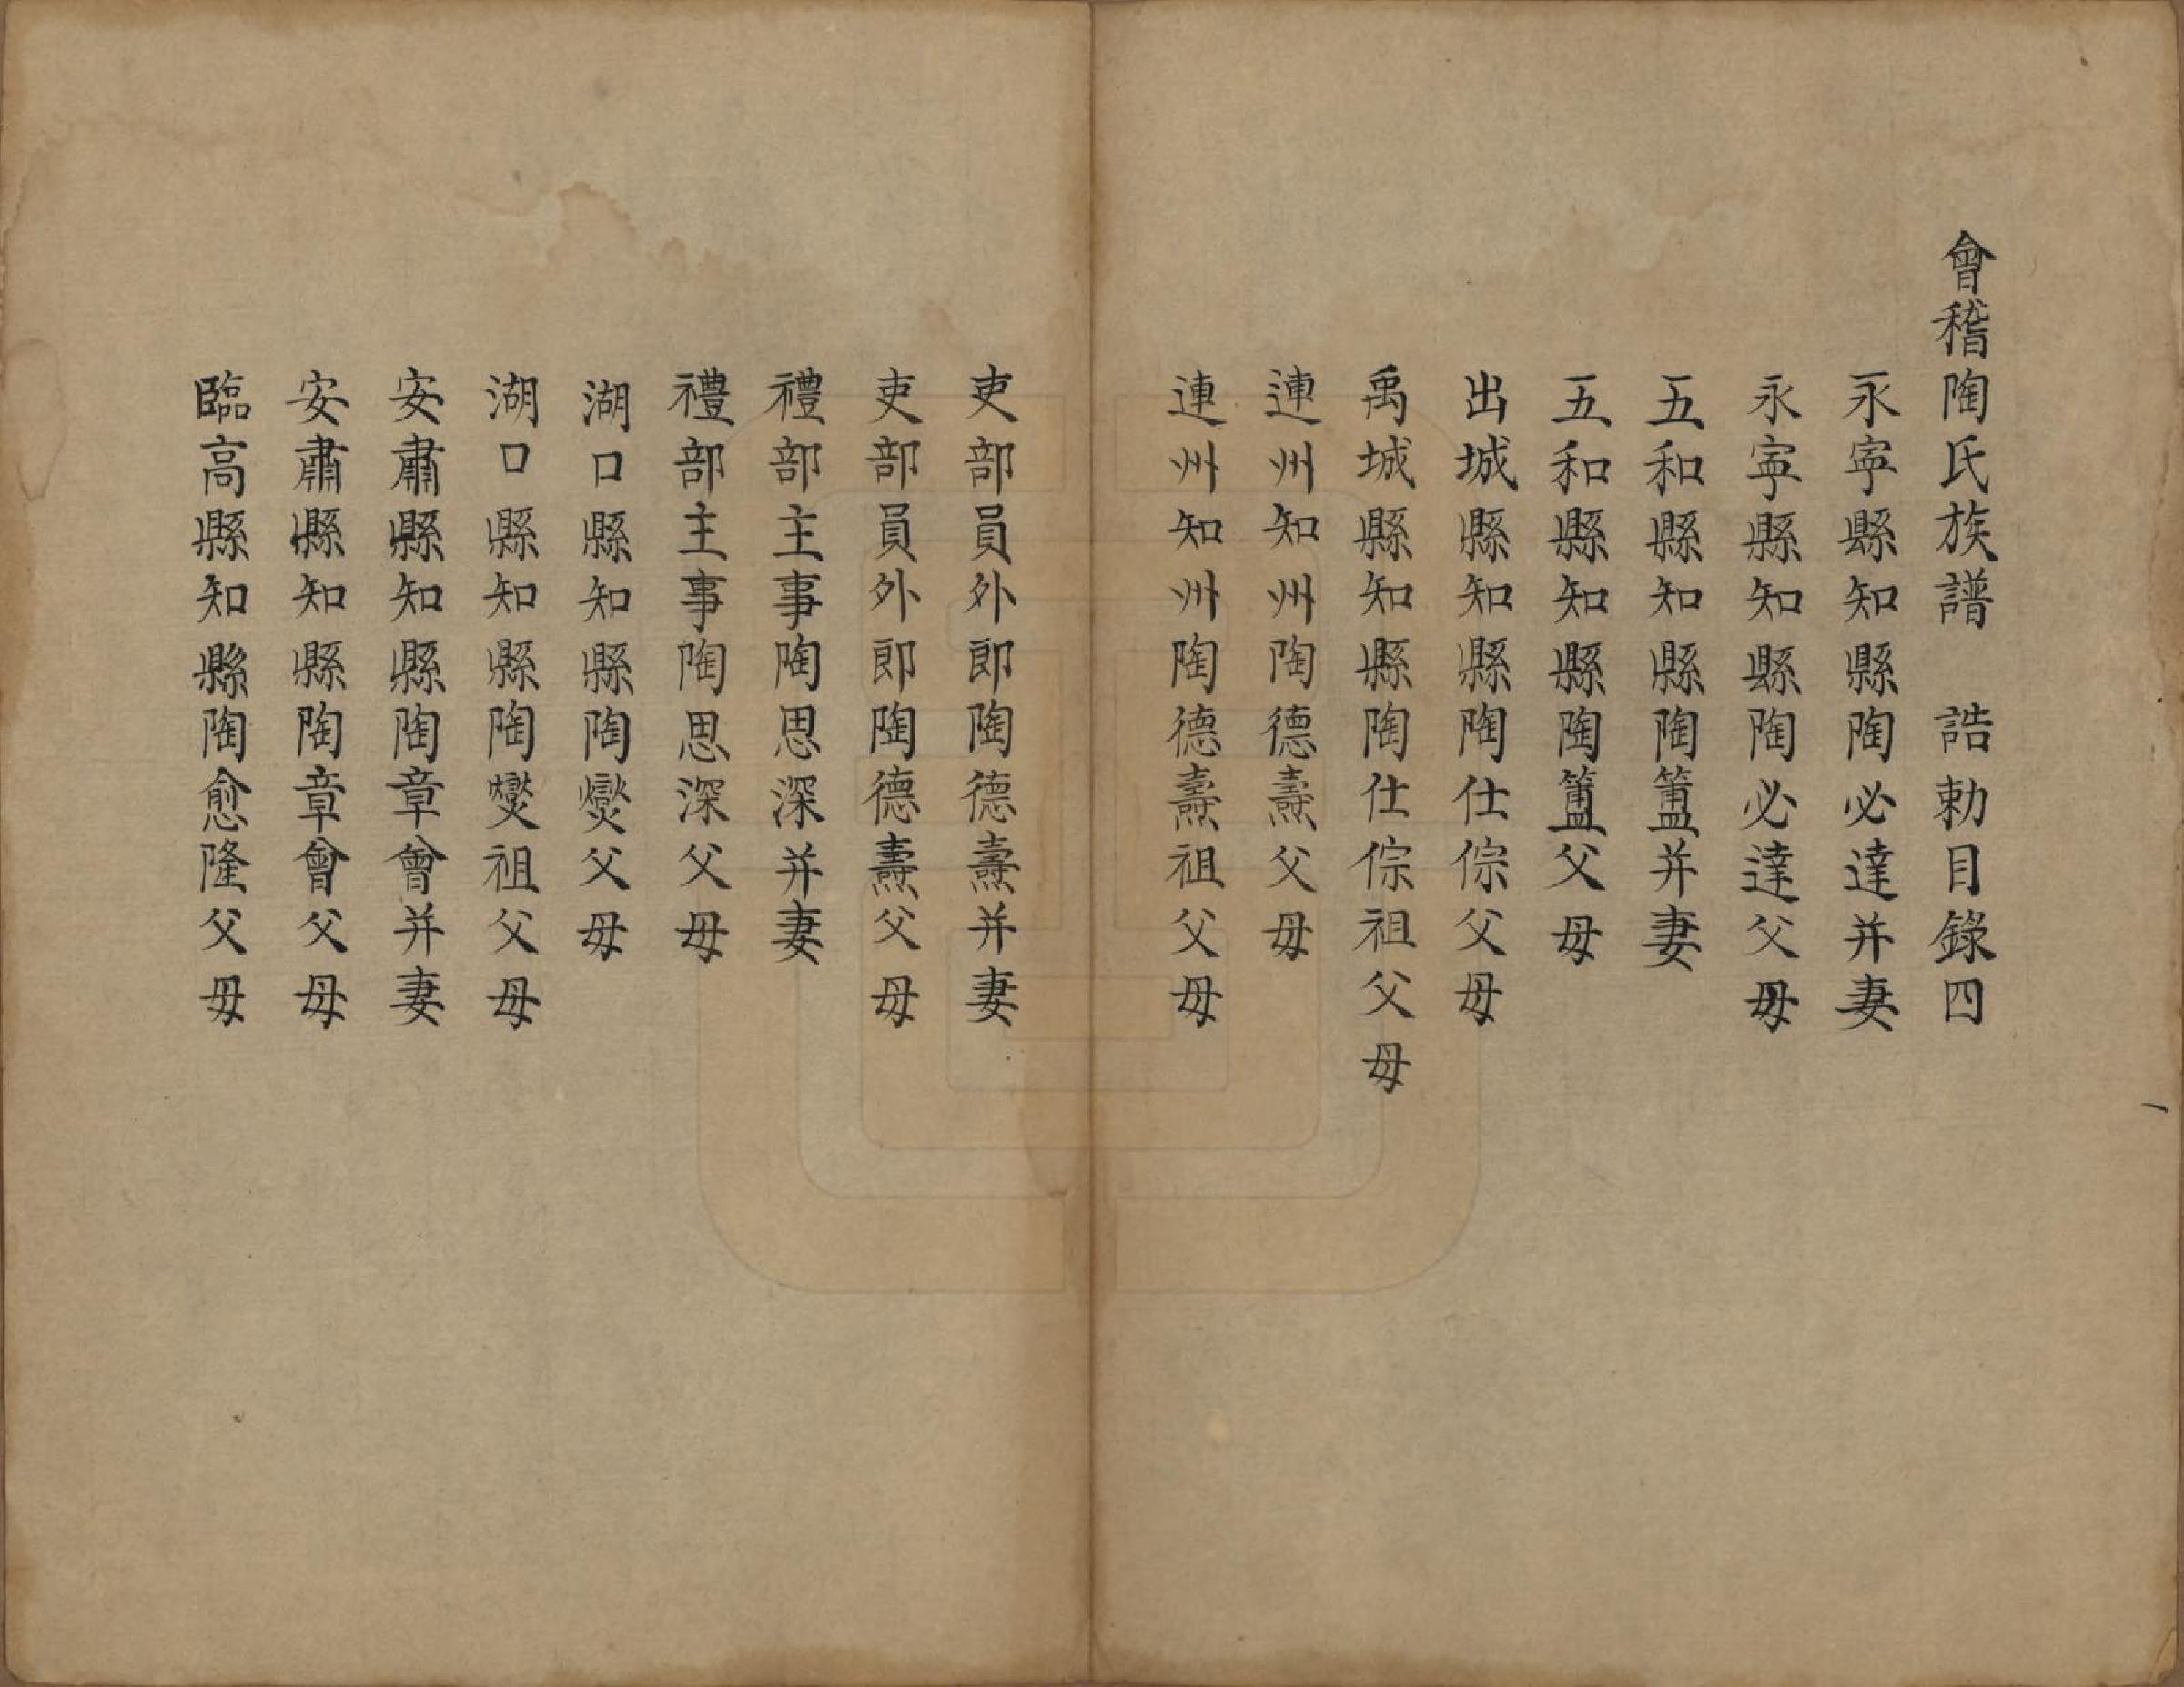 會稽陶氏族譜　誥勅目錄四
永寧縣知縣陶必達并妻
永寧縣知縣陶必達父母
五和縣知縣陶簠并妻
五和縣知縣陶簠父母
出城縣知縣陶仕倧父母
禹城縣知縣陶仕倧祖父母
連州知州陶德燾父母
連州知州陶德燾祖父母
吏部員外郎陶德燾并妻
吏部員外郎陶德燾父母
禮部主事陶思深并妻
禮部主事陶思深父母
湖口縣知縣陶燮父母
湖口縣知縣陶燮祖父母
安肅縣知縣陶章曾并妻
安肅縣知縣陶章曾父母
臨高縣知縣陶愈隆父母